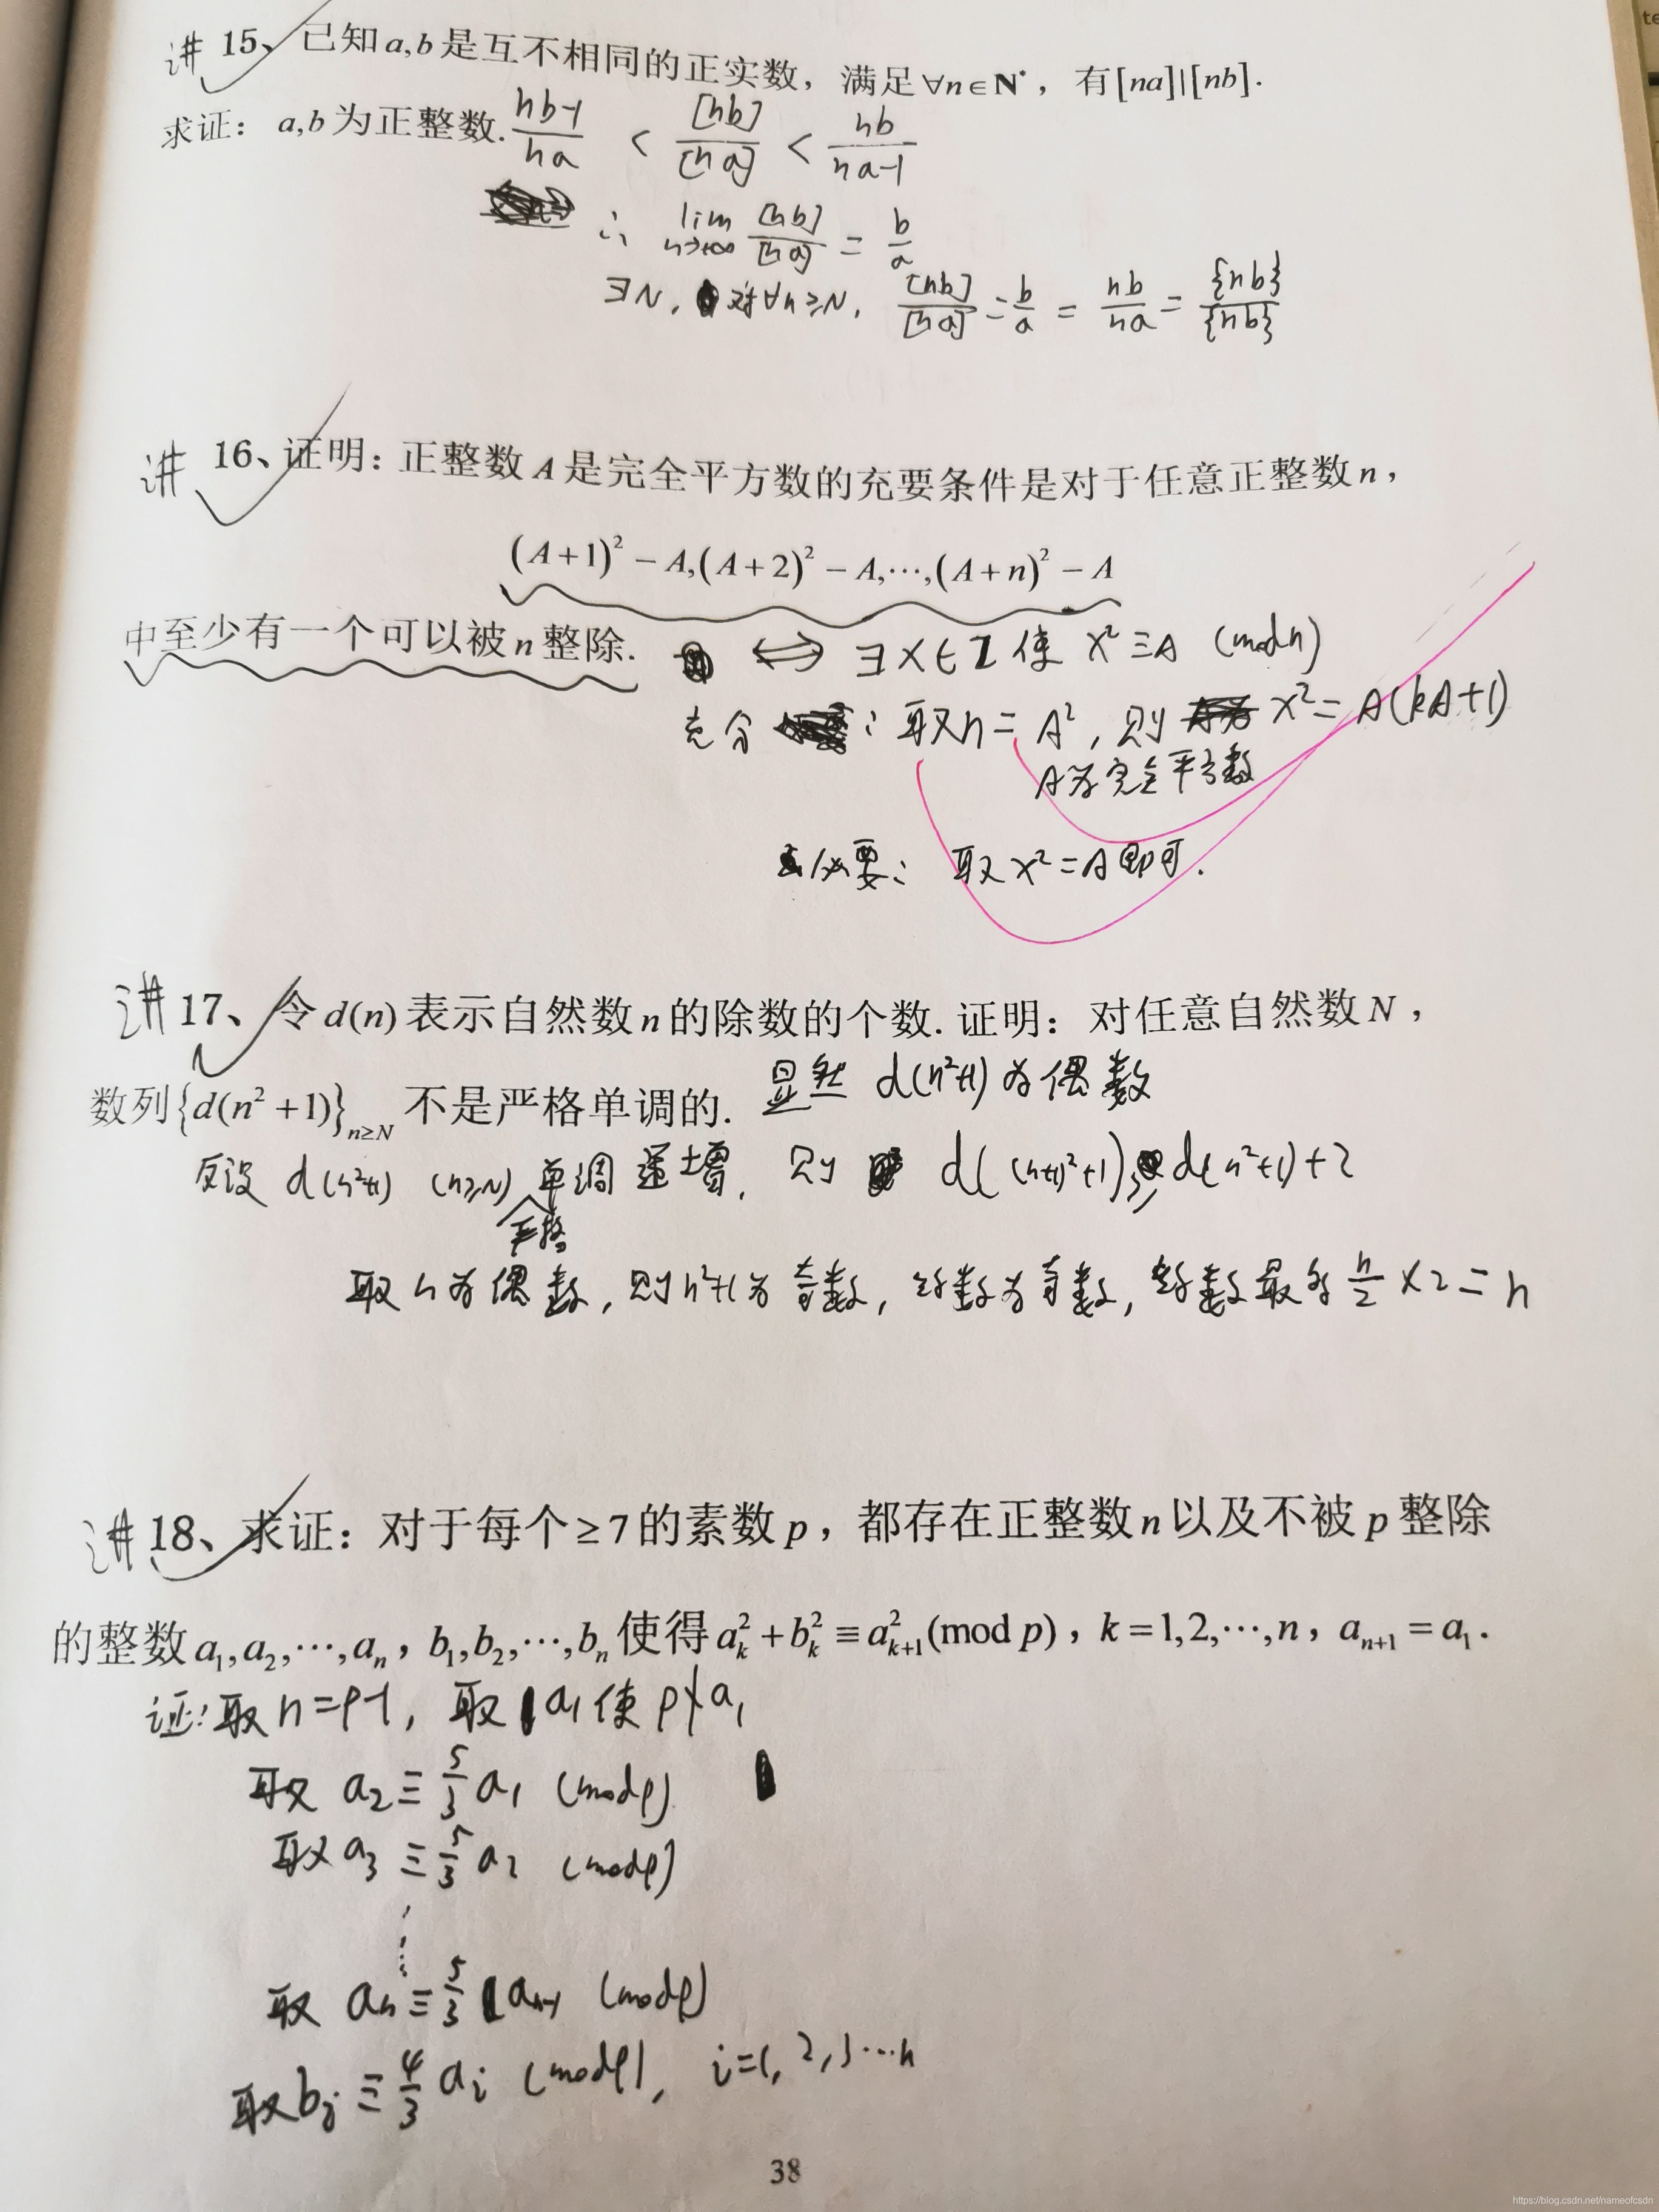 讲 15、已知a,b是互不相同的正实数，满足∀n∈N*，有[na]|[nb].
求证：a,b为正整数. (nb-1)/(na) < [nb]/[na] < (nb)/(na-1)
∴ lim n→+∞ [nb]/[na] = b/a
∃N，对∀n≥N，[nb]/[na] = b/a = nb/na = {nb}/{nb}
讲 16、证明：正整数A是完全平方数的充要条件是对于任意正整数n，
(A+1)²-A,(A+2)²-A,⋯,(A+n)²-A
中至少有一个可以被n整除. ⟺ ∃x∈Z 使 x²≡A (mod n)
充分：取n=A²，则 x²=A(kA+1)
A为完全平方数
必要：取x²=A即可.
讲 17、令d(n)表示自然数n的除数的个数.证明：对任意自然数N，
数列{d(n²+1)}n≥N 不是严格单调的. 显然 d(n²+1)为偶数
反设 d(n²+1) (n≥N) 严格单调递增，则 d((n+1)²+1)≥d(n²+1)+2
取n为偶数，则n²+1为奇数，约数为奇数，约数最多 n/2×2=n
讲 18、求证：对于每个≥7的素数p，都存在正整数n以及不被p整除
的整数a₁,a₂,⋯,aₙ，b₁,b₂,⋯,bₙ使得aₖ²+bₖ²≡aₖ₊₁²(mod p)，k=1,2,⋯,n，aₙ₊₁=a₁.
证：取n=p-1，取a₁使p∤a₁
取 a₂≡5/3 a₁ (mod p)
取 a₃≡5/3 a₂ (mod p)
⋮
取 aₙ≡5/3 aₙ₋₁ (mod p)
取bᵢ≡4/3 aᵢ (mod p)，i=1,2,3⋯n
38
https://blog.csdn.net/nameofcsdn